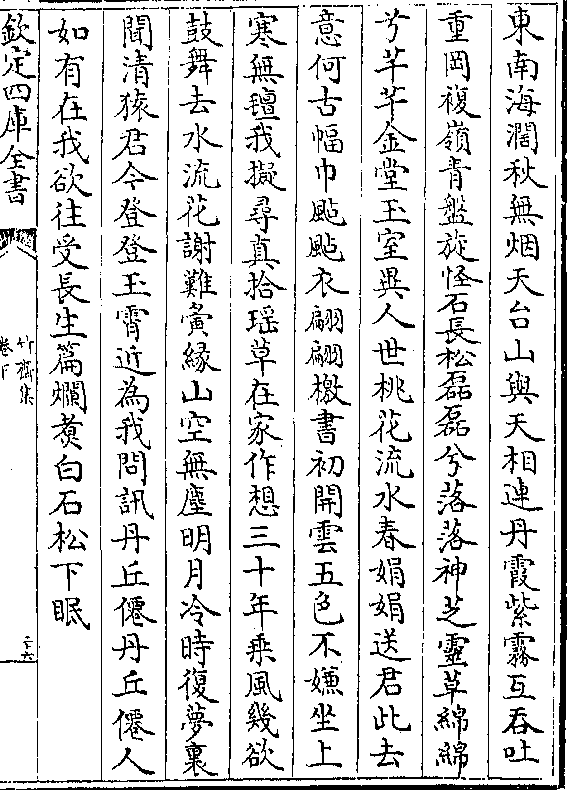 東南海濶秋無烟天台山與天相連丹霞紫霧互吞吐
重岡複嶺青盤旋怪石長松磊磊兮落落神芝靈草綿綿
兮芊芊金堂玉室異人世桃花流水春娟娟送君此去
意何古幅巾颭颭衣翩翩檄書初開雲五色不嫌坐上
寒無氊我擬尋真拾瑶草在家作想三十年乘風幾欲
鼓舞去水流花謝難夤緣山空無塵明月冷時復夢裏
聞清猿君今登登玉霄近為我問訊丹丘僊丹丘僊人
如有在我欲往受長生篇爛煑白石松下眠
欽定四庫全書
竹齋集
卷下
二十六